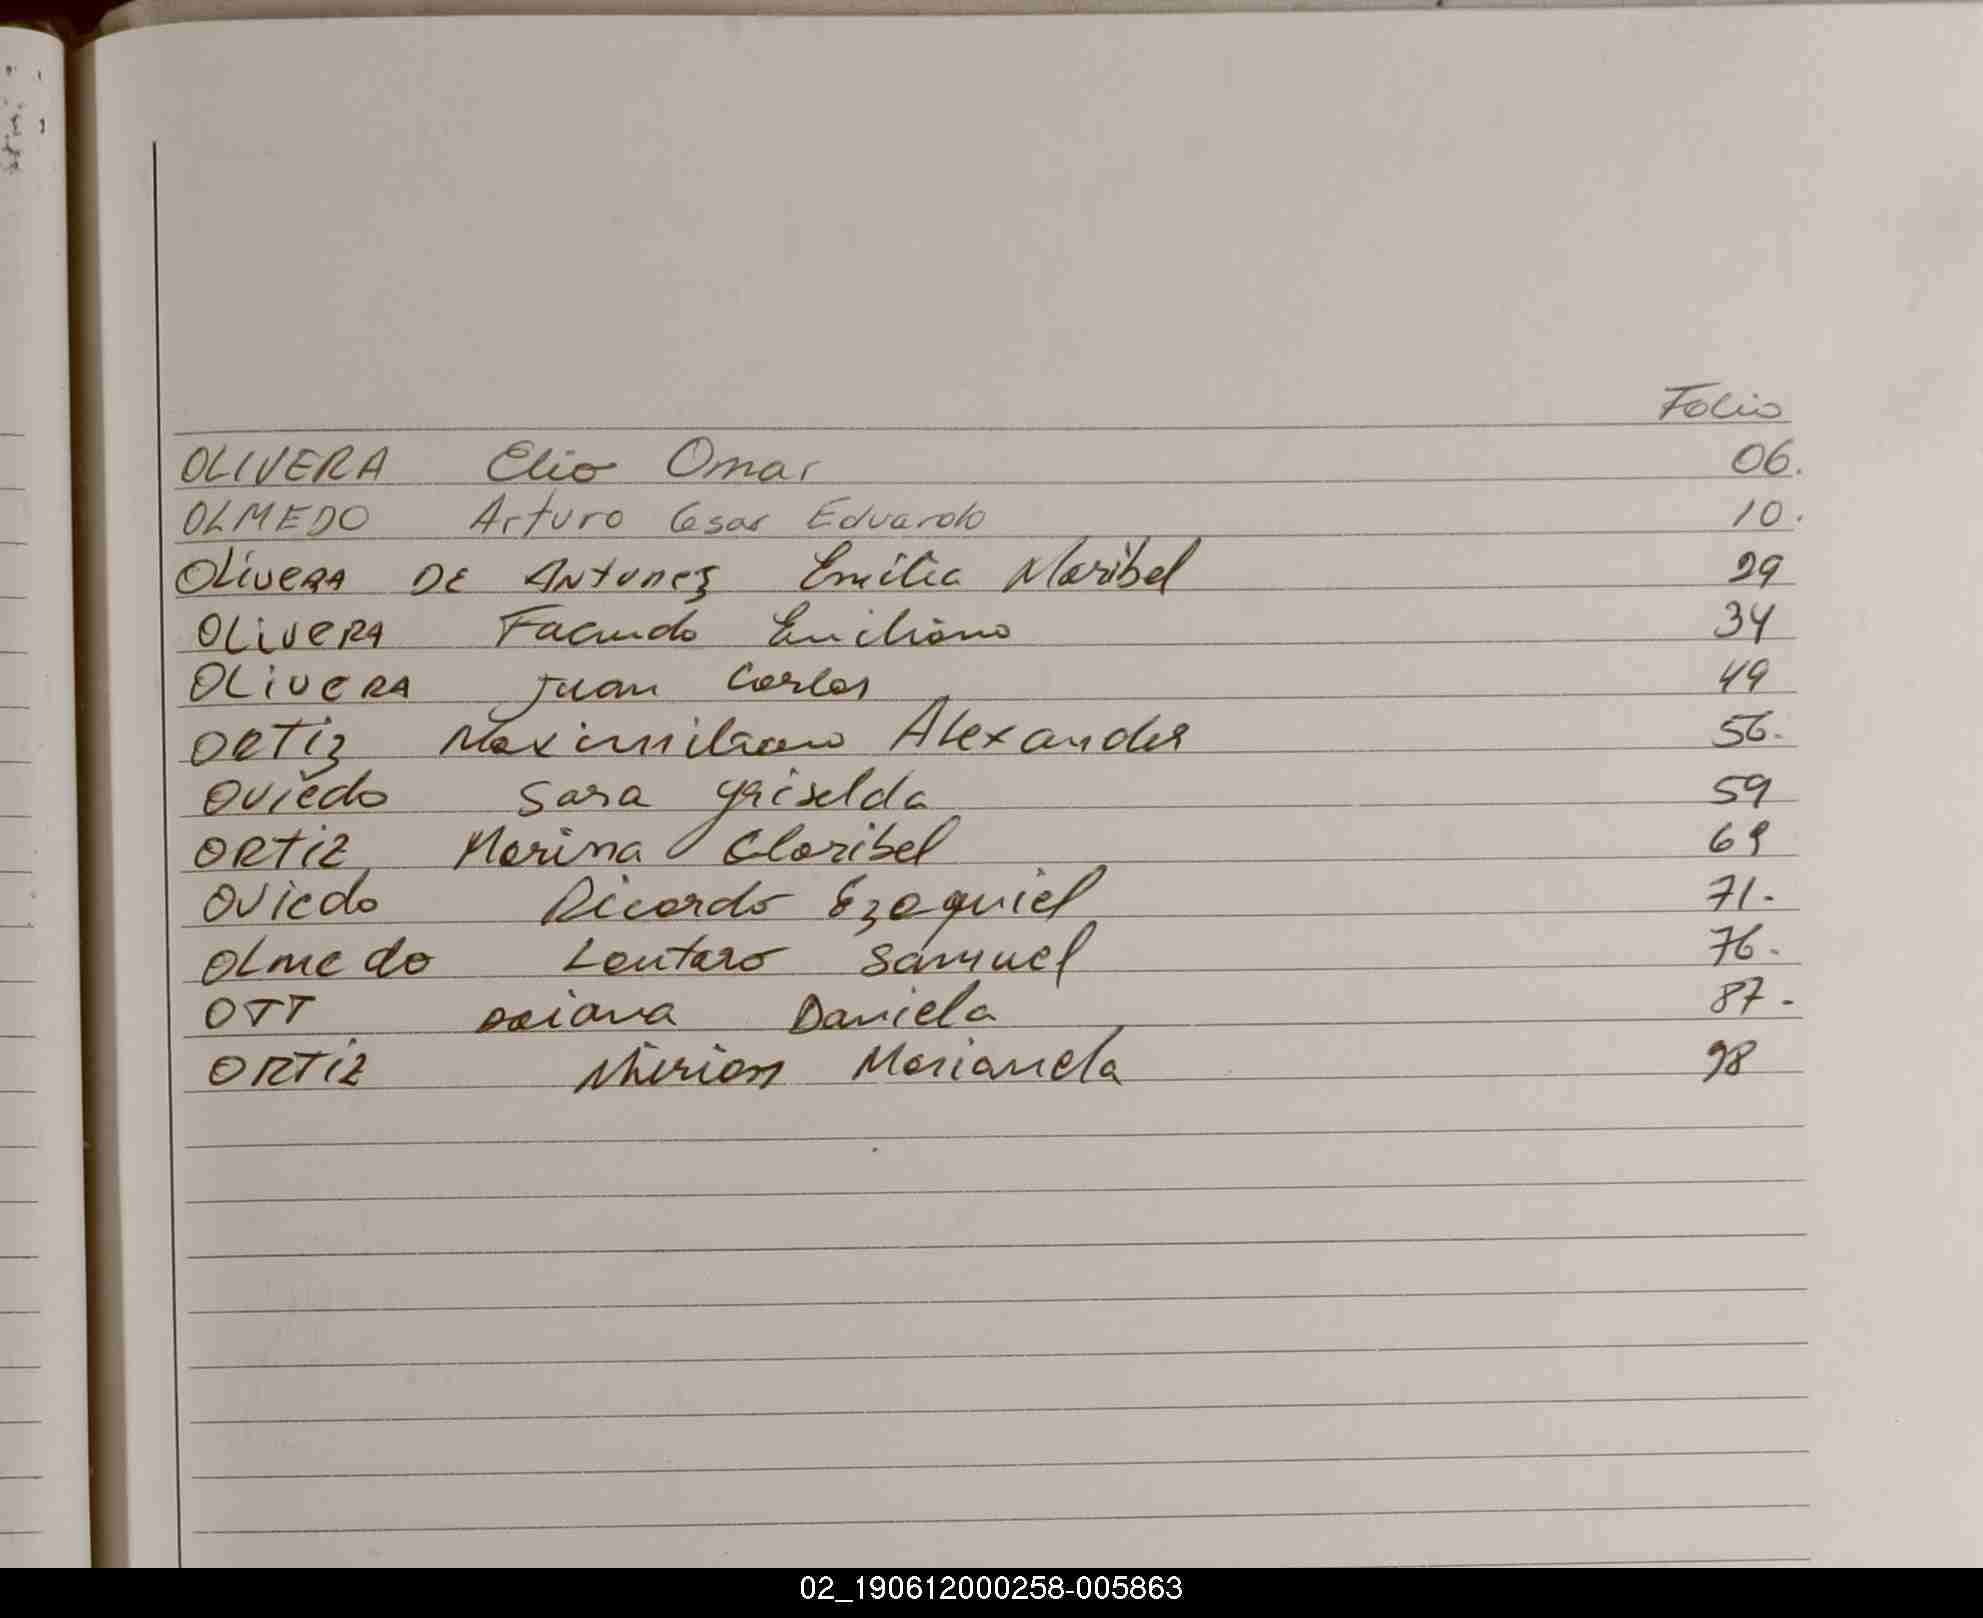 Folio
OLIVERA Elio Omar 06.
OLMEDO Arturo Cesar Eduardo 10.
OLivERA DE Antunez Emilia Maribel 29
OLivERA Facundo Emiliano 34
OLivERA Juan Carlos 49
ORTiz Maximiliano Alexander 56.
Oviedo Sara Griselda 59
ORTiz Marina Claribel 69
Oviedo Ricardo Ezequiel 71.
Olmedo Lautaro Samuel 76.
OTT Daiana Daniela 87.
ORTiz Mirian Marianela 98
02_190612000258-005863